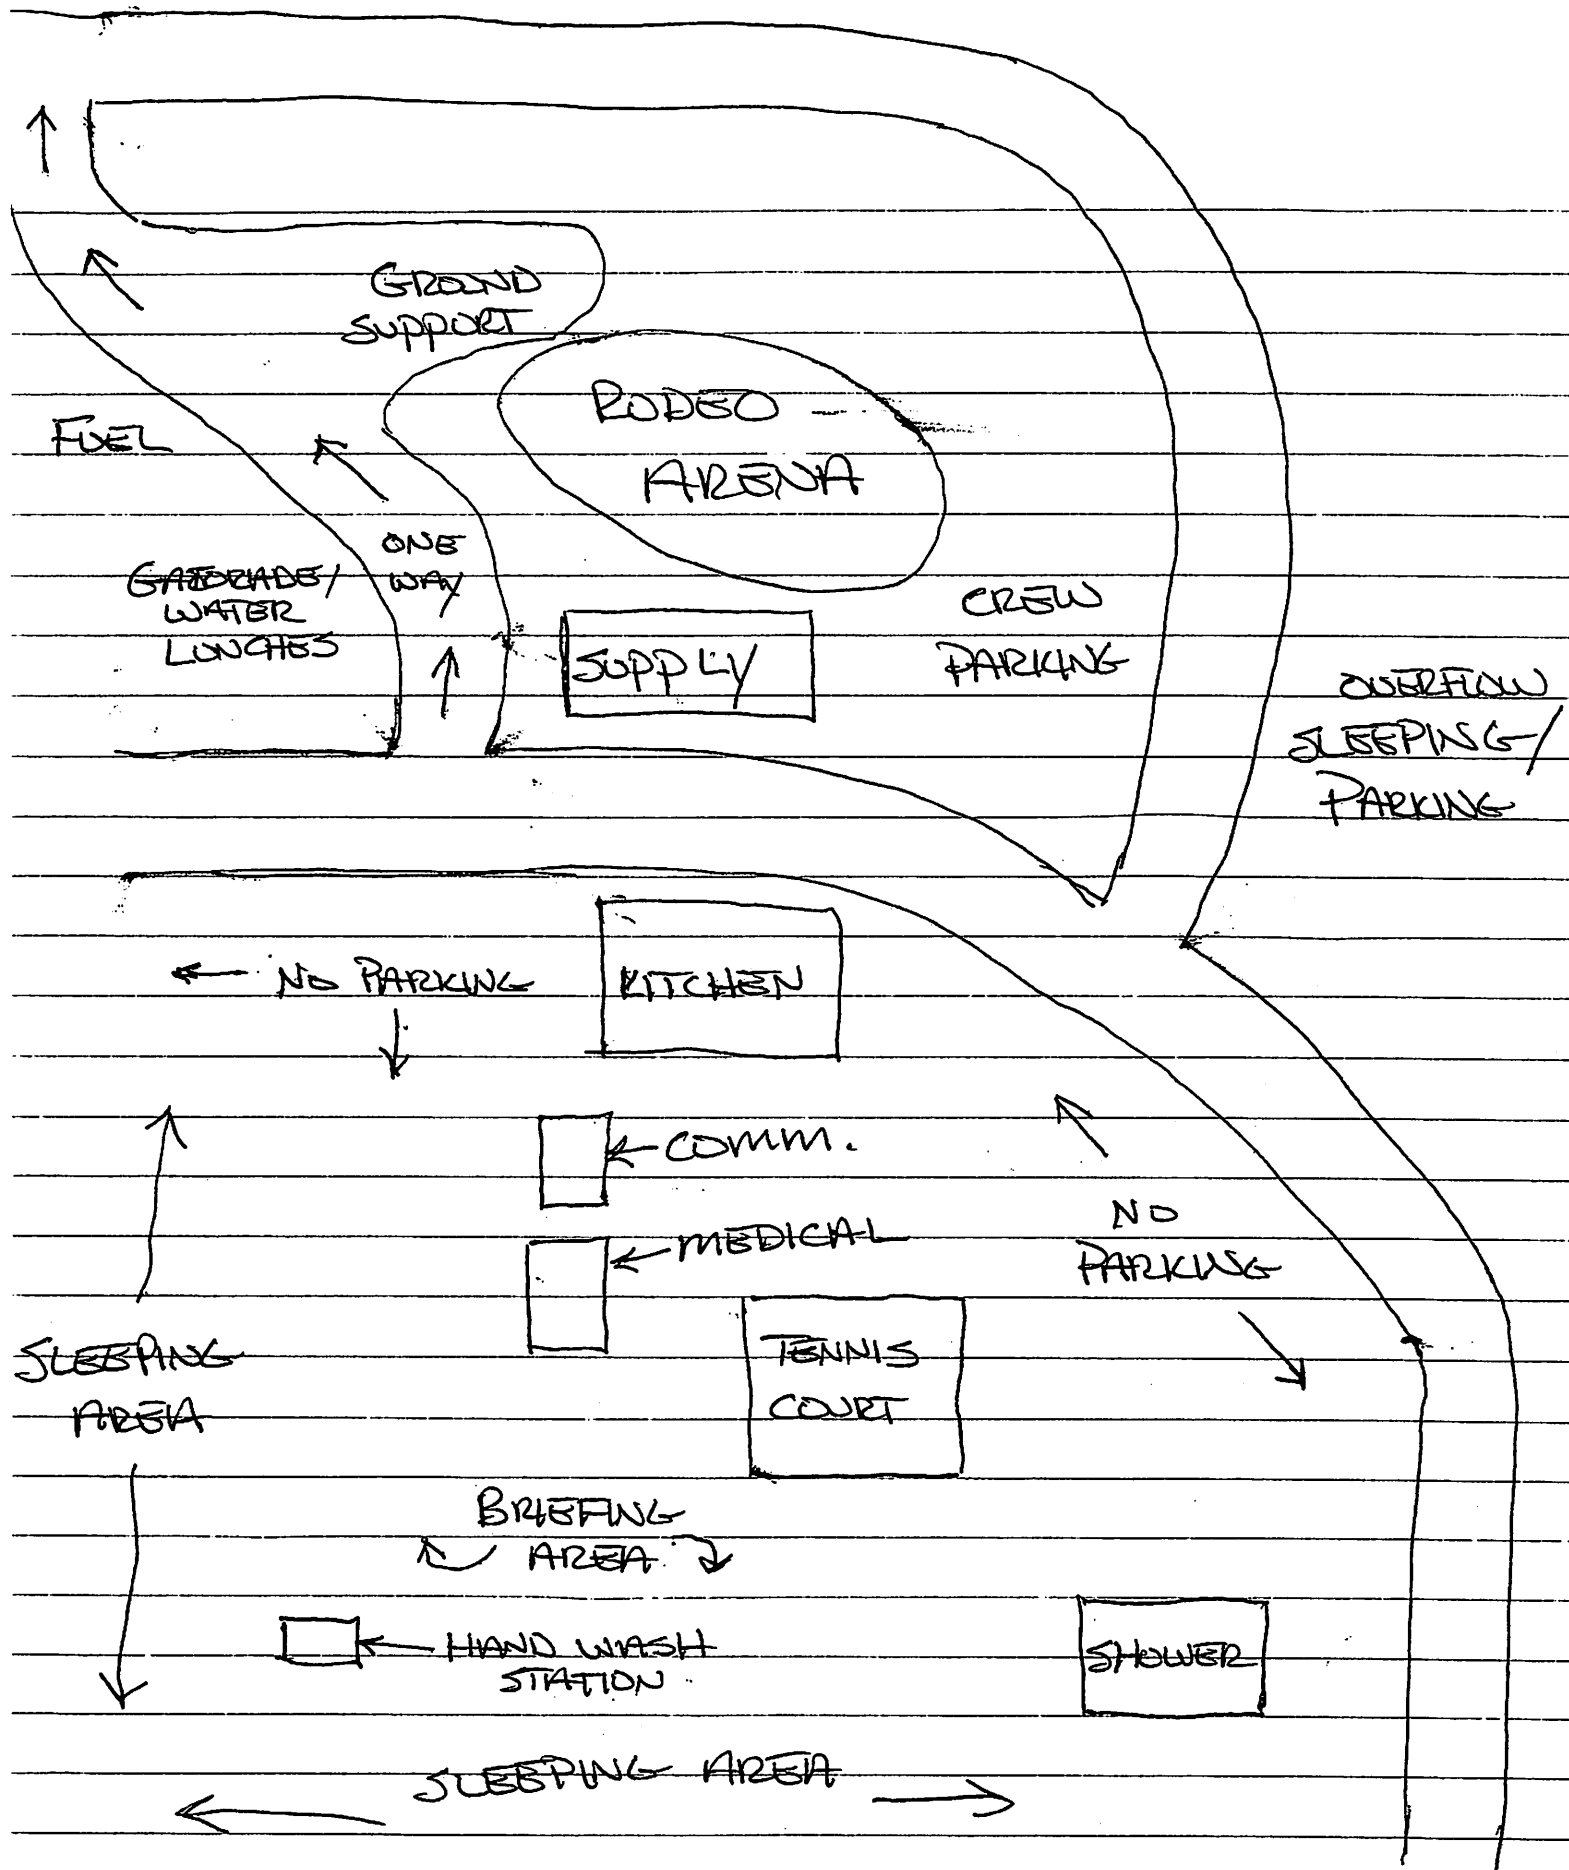 GROUND
SUPPORT
RODEO
ARENA
FUEL
ONE
WAY
GATORADE/
WATER
LUNCHES
SUPPLY
CREW
PARKING
OVERFLOW
SLEEPING/
PARKING
NO PARKING
KITCHEN
COMM.
MEDICAL
NO
PARKING
SLEEPING
AREA
TENNIS
COURT
BRIEFING
AREA
HAND WASH
STATION
SHOWER
SLEEPING AREA